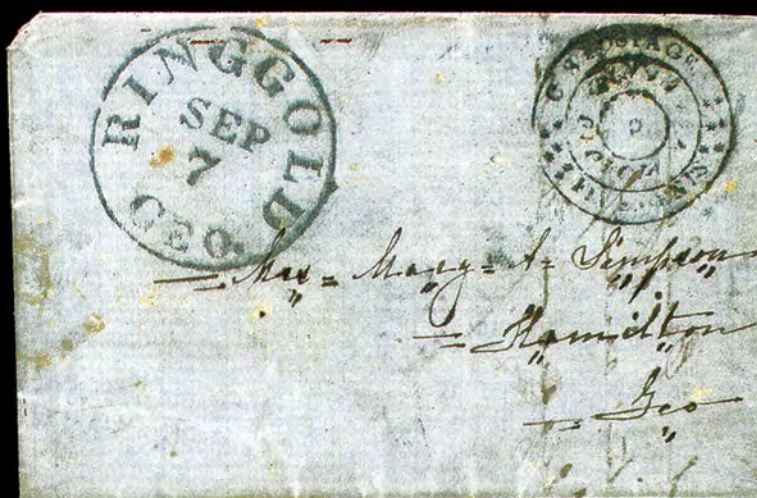 RINGGOLD
SEP
7
GEO.
POSTAGE
= Mrs = Mary = A = Simpson
= Hamilton
= Geo